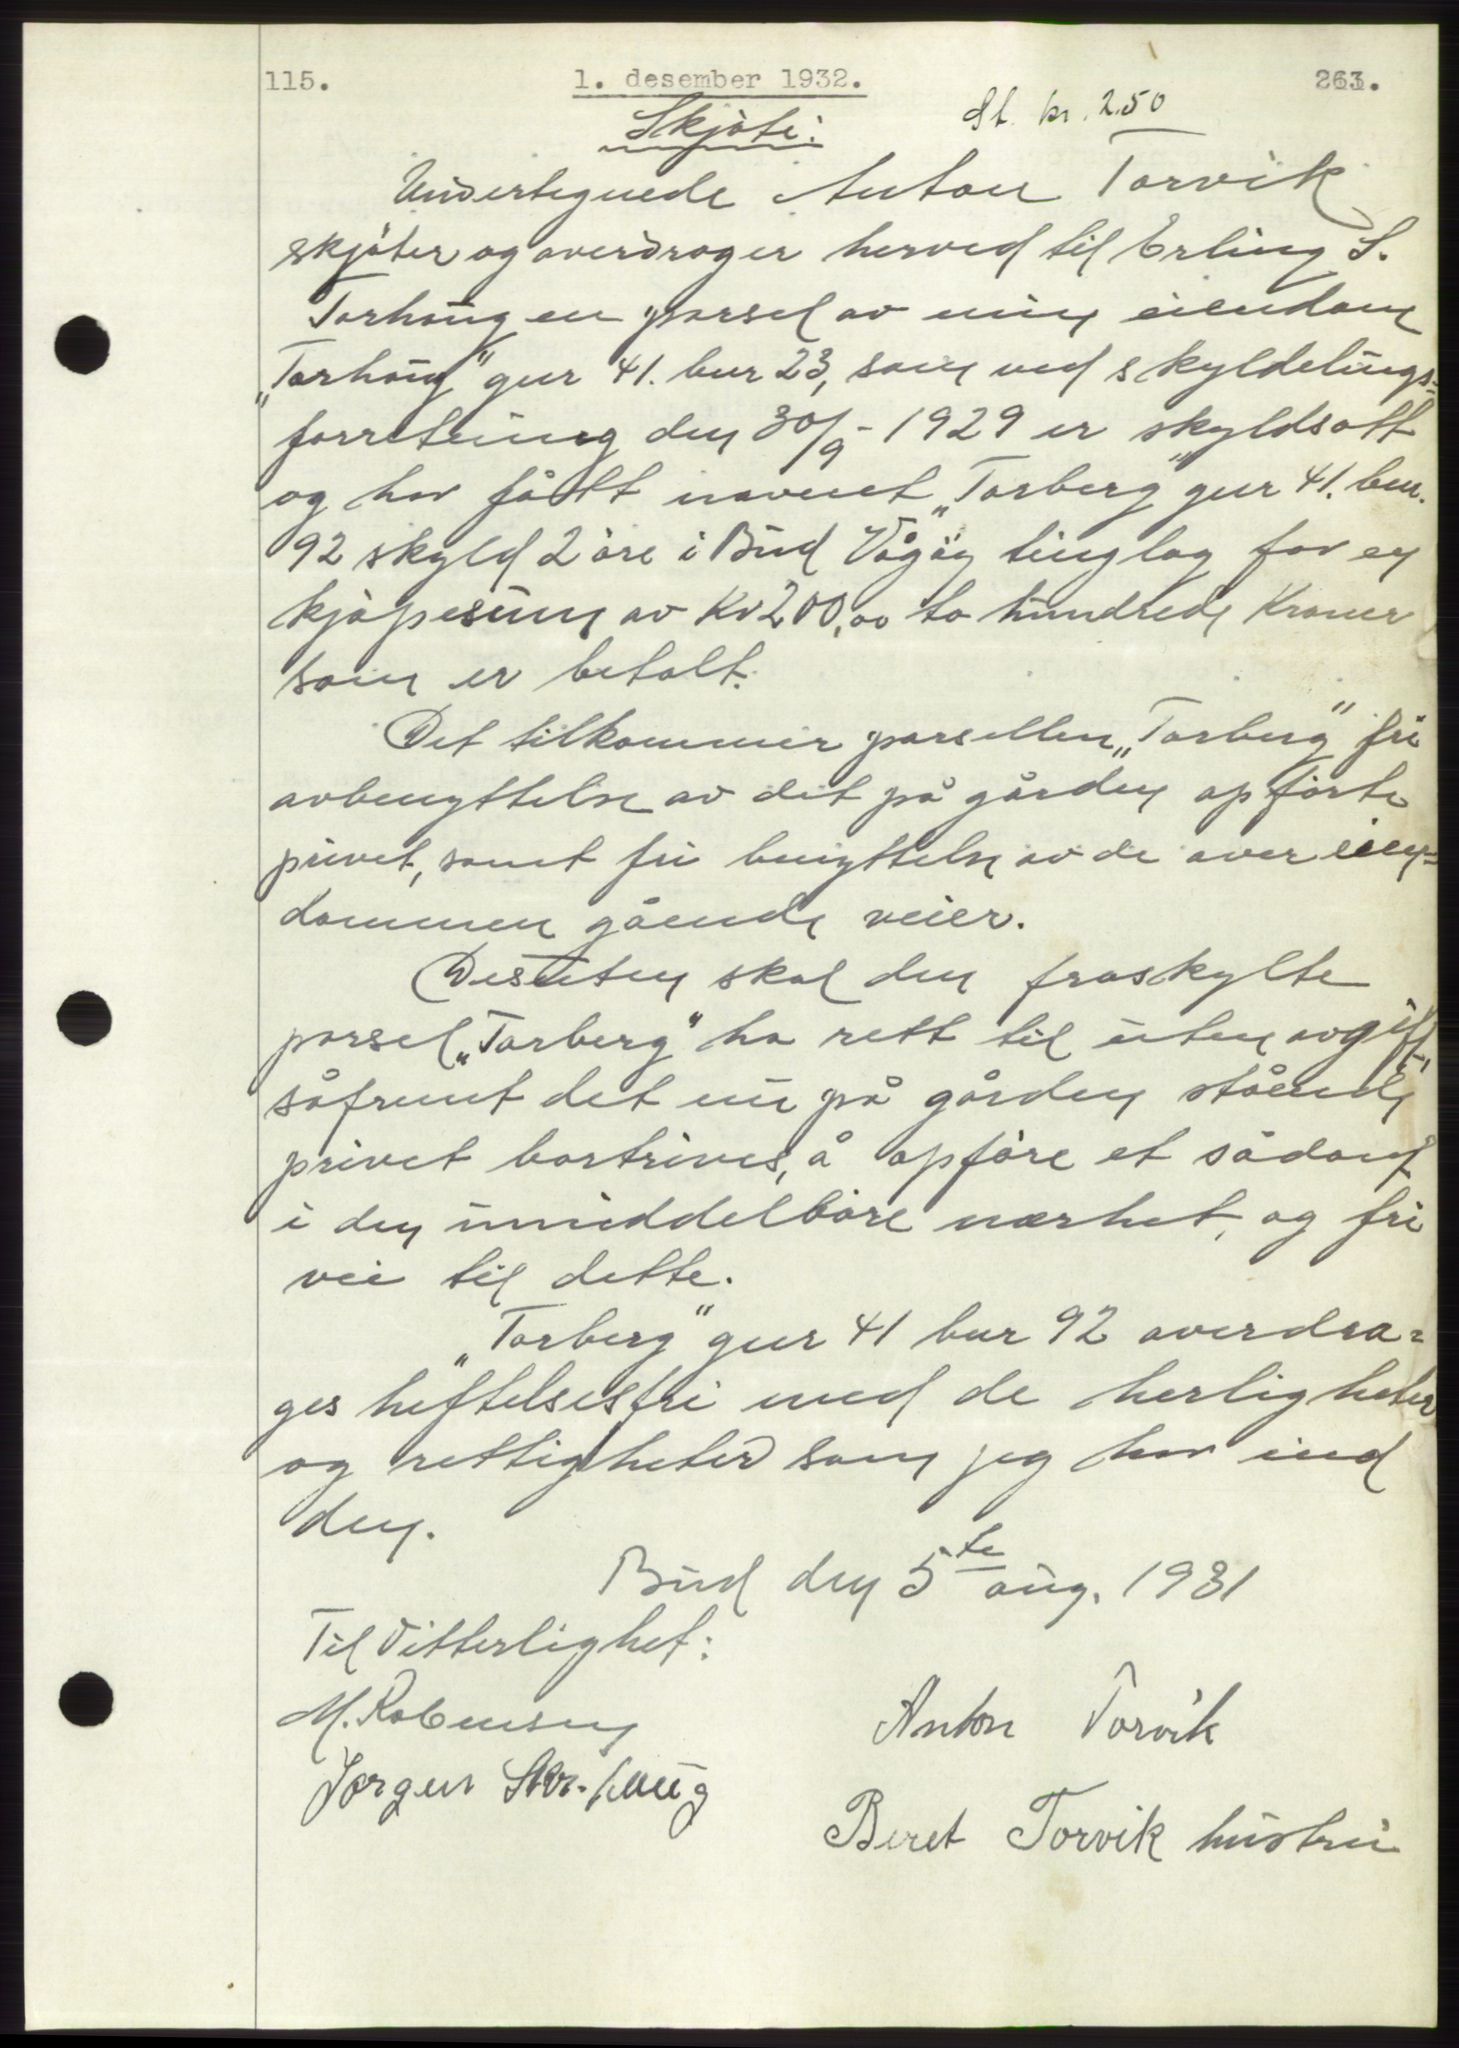 115. 1. desember 1932. 263.
Skjöte: St. kr. 2.50
Undertegnede Anton Torvik
skjöter og overdrager herved til Erling S.
Torhaug en parsel av min eiendom
„Torhaug" gnr 41. bnr 23, som ved skyldelings=
forretning den 30/9 - 1929 er skyldsatt
og har fått navnet „Torberg" gnr 41. bnr.
92 skyld 2 öre i Bud Vågöy tinglag for en
kjöpesum av Kr 200,00 to hundrede Kroner
som er betalt.
Det tilkommer parsellen „Torberg" fri
avbenyttelse av det på gården opförte
privet, samt fri benyttelse av de over eien=
dommen gående veier.
Desuten skal den fraskylte
parsel „Torberg" ha rett til uten avgift,
såfremt det nu på gården stående
privet bortrives, å opföre et sådant
i den umiddelbare nærhet, og fri
vei til dette.
„Torberg" gnr 41 bnr 92 overdra=
ges heftelsesfri med de herligheter
og rettigheter som jeg har ind
den.
Bud den 5te aug. 1931
Til Vitterlighet:
M. Robensen
Anton Torvik
Jørgen haug
Beret Torvik hustru